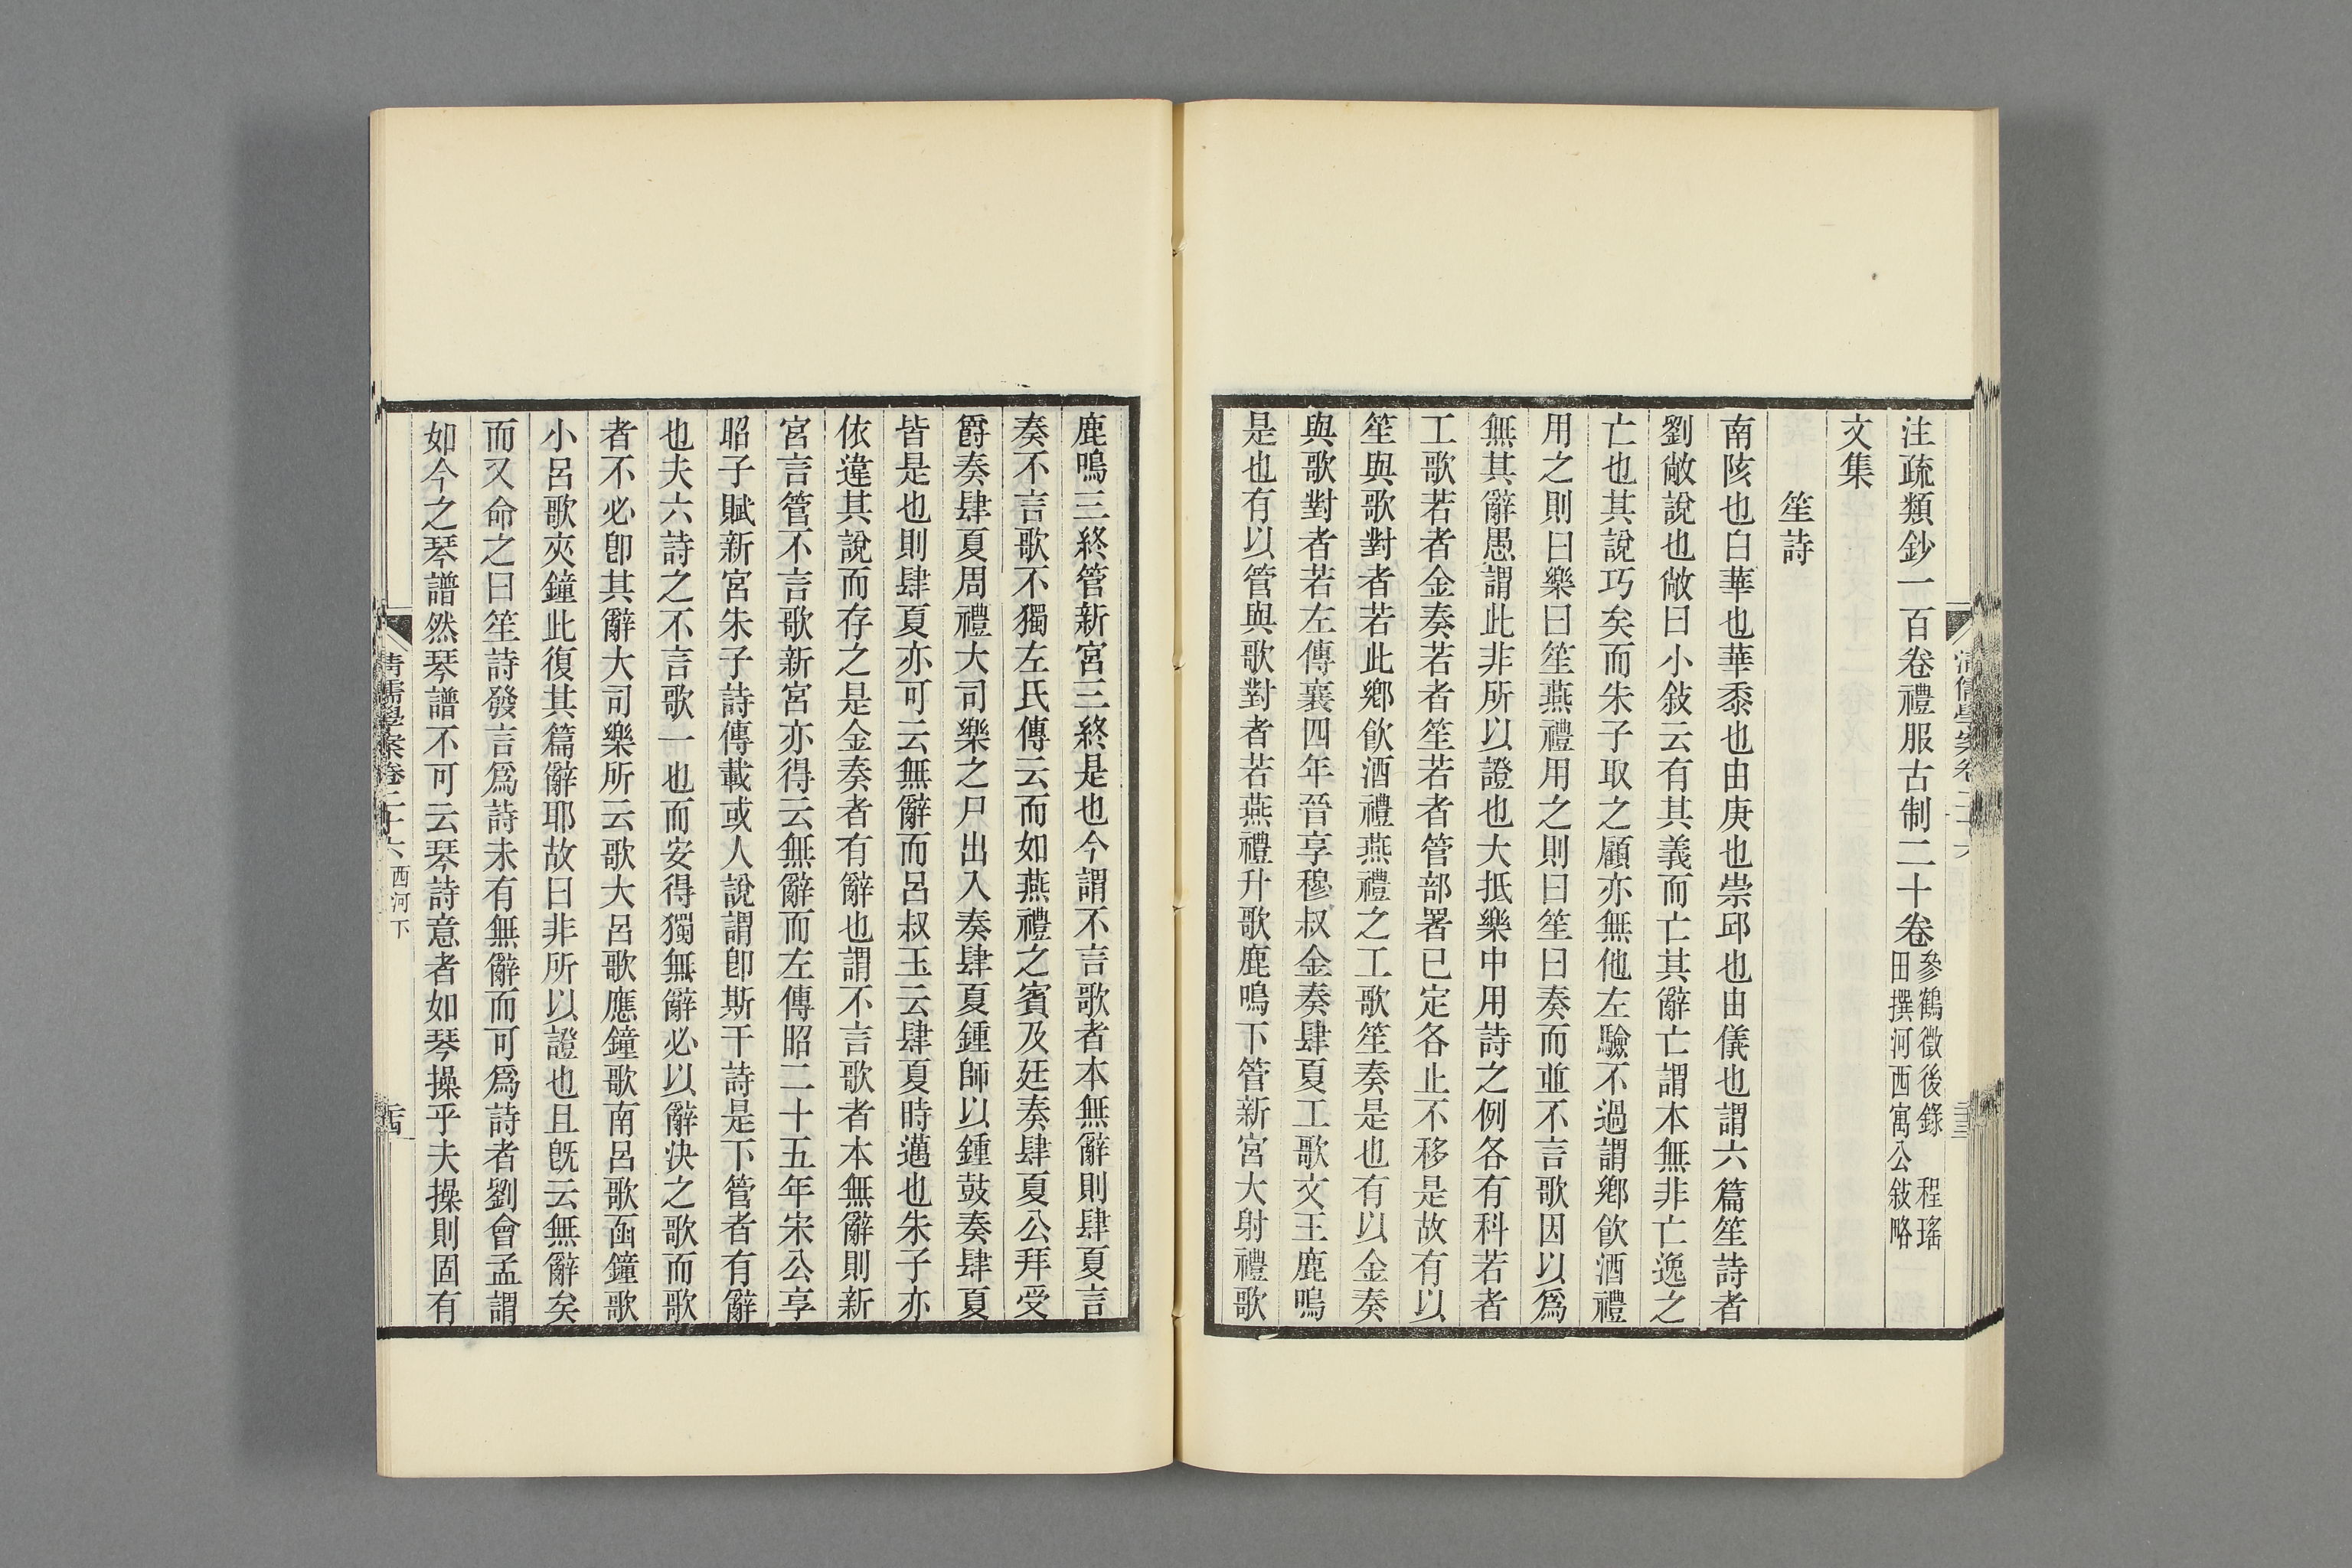 注疏類鈔一百卷禮服古制二十卷參鶴徵後錄 程瑤
田撰河西寓公敍略
文集
笙詩
南陔也白華也華黍也由庚也崇邱也由儀也謂六篇笙詩者
劉敞說也敞曰小敍云有其義而亡其辭亡謂本無非亡逸之
亡也其說巧矣而朱子取之顧亦無他左驗不過謂鄉飲酒禮
用之則曰樂曰笙燕禮用之則曰笙曰奏而並不言歌因以爲
無其辭愚謂此非所以證也大抵樂中用詩之例各有科若者
工歌若者金奏若者笙若者管部署已定各止不移是故有以
笙與歌對者若此鄉飲酒禮燕禮之工歌笙奏是也有以金奏
與歌對者若左傳襄四年晉享穆叔金奏肆夏工歌文王鹿鳴
是也有以管與歌對者若燕禮升歌鹿鳴下管新宮大射禮歌
鹿鳴三終管新宮三終是也今謂不言歌者本無辭則肆夏言
奏不言歌不獨左氏傳云而如燕禮之賓及廷奏肆夏公拜受
爵奏肆夏周禮大司樂之尸出入奏肆夏鍾師以鍾鼓奏肆夏
皆是也則肆夏亦可云無辭而呂叔玉云肆夏時邁也朱子亦
依違其說而存之是金奏者有辭也謂不言歌者本無辭則新
宮言管不言歌新宮亦得云無辭而左傳昭二十五年宋公享
昭子賦新宮朱子詩傳載或人說謂卽斯干詩是下管者有辭
也夫六詩之不言歌一也而安得獨無辭必以辭決之歌而歌
者不必卽其辭大司樂所云歌大呂歌應鐘歌南呂歌函鐘歌
小呂歌夾鐘此復其篇辭耶故曰非所以證也且旣云無辭矣
而又命之曰笙詩發言爲詩未有無辭而可爲詩者劉會孟謂
如今之琴譜然琴譜不可云琴詩意者如琴操乎夫操則固有
清儒學案卷二十六 西河下